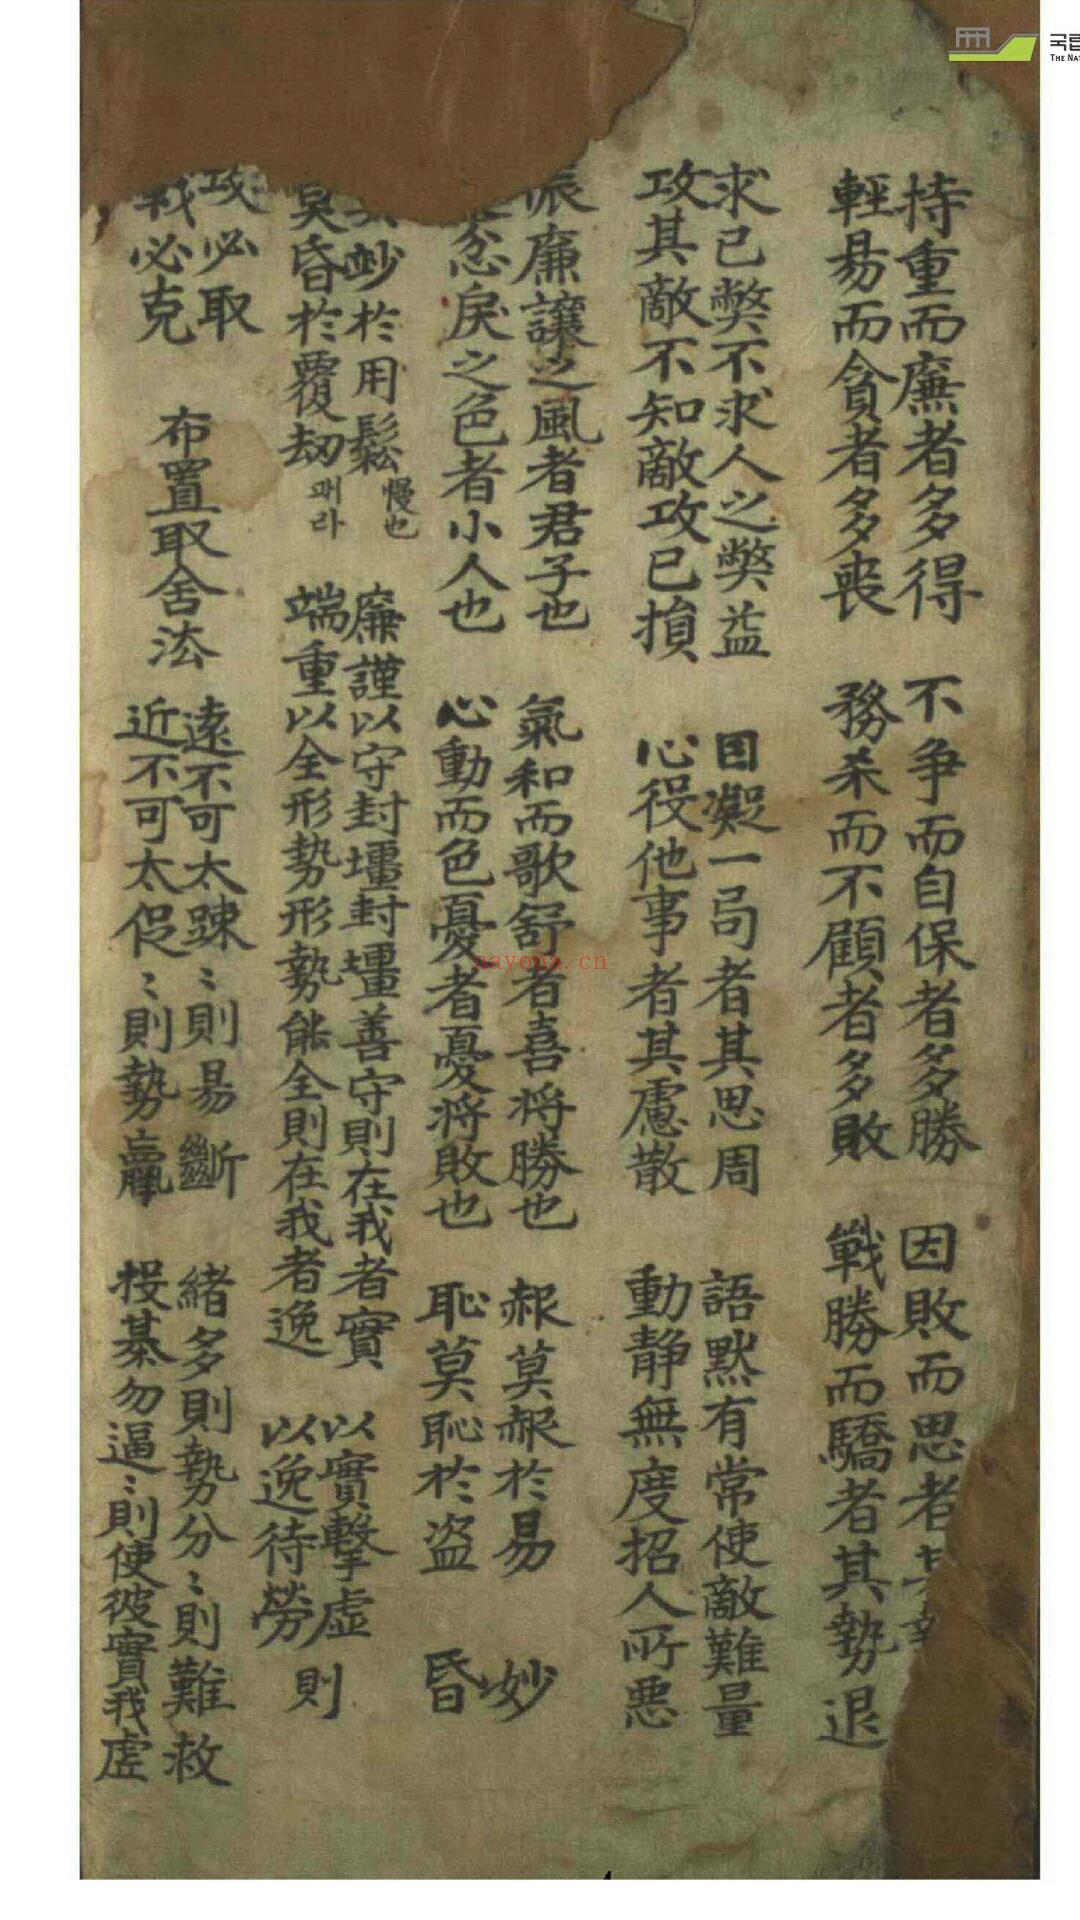 持重而廉者多得 不争而自保者多勝 因敗而思者其勢
輕易而貪者多丧 務杀而不顧者多敗 戰勝而驕者其勢退
求己獘不求人之獘益 目凝一局者其思周 語默有常使敵難量
攻其敵不知敵攻己損 心役他事者其慮散 動静無度招人所悪
振廉讓之風者君子也 氣和而歌舒者喜将勝也 赧莫赧於易 妙
忿戾之色者小人也 心動而色憂者憂将敗也 恥莫恥於盗 昏
妙於用鬆 慢也 廉謹以守封壃封壃善守則在我者實 以實擊虚 則
莫昏於覆劫 패라 端重以全形勢形勢能全則在我者逸 以逸待勞
攻必取 布置取舍法 遠不可太踈〻則易斷 緒多則勢分〻則難救
戰必克 近不可太促〻則勢羸 投棊勿逼〻則使彼實我虚
nayona.cn
국립
THE NAT